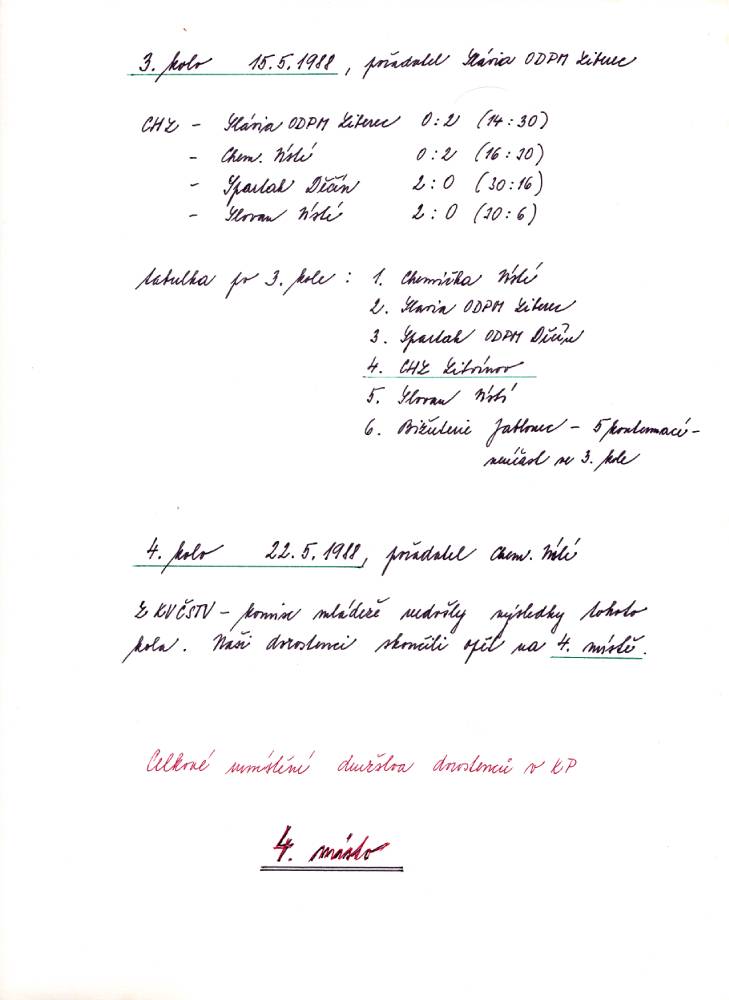 3. kolo 15.5.1988, pořadatel Slávia ODPM Liberec
CHZ - Slávia ODPM Liberec 0:2 (14:30)
- Chem. Ústí 0:2 (16:30)
- Spartak Děčín 2:0 (30:16)
- Slovan Ústí 2:0 (30:6)
tabulka po 3. kole : 1. Chemička Ústí
2. Slavia ODPM Liberec
3. Spartak ODPM Děčín
4. CHZ Litvínov
5. Slovan Ústí
6. Bižuterie Jablonec - 5 kontumací -
neúčast ve 3. kole
4. kolo 22.5.1988, pořadatel Chem. Ústí
Z KVČSTV - komise mládeže nedošly výsledky tohoto
kola. Naši dorostenci skončili opět na 4. místě.
Celkové umístění družstva dorostenců v KP
4. místo